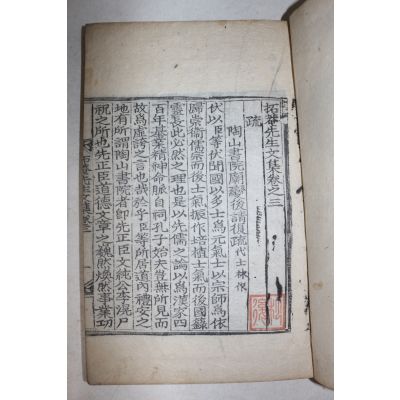 拓菴先生文集卷之三
疏
陶山書院廟變後請復疏代士林作
伏以臣等伏聞國以多士爲元氣士以宗師爲依
歸崇衛儒宗而後士氣振作培植士氣而後國籙
靈長此必然之理也是以先儒之論以爲漢家四
百年基業精神命脉自祠孔子始矣豈無所見而
故爲虛誇之言也哉於乎臣等所居道內禮安之
地有所謂陶山書院者卽先正臣文純公李滉尸
祝之所也先正臣道德文章之巍然煥然事業功
拓菴先生文集卷三